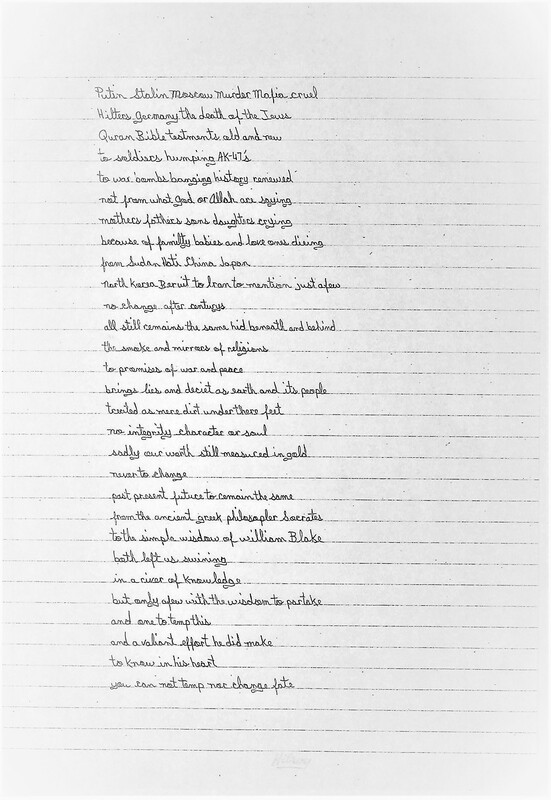 Putin Stalin Moscow Murder Mafia cruel
Hitlers Germany the death of the Jews
Quran Bible testments old and new
to soldiers humping AK-47's
to war bombs banging history renewed
not from what God or Allah are saying
mothers fathers sons daughters crying
because of familty babies and love ones dieing
from Sudan Hati China Japan
North Korea Beruit to Iran to mention just afew
no change after centurys
all still remains the same hid beneath and behind
the smoke and mirrors of religions
to promises of war and peace
brings lies and deciet as earth and its people
treated as mere dirt under there feet
no integrity character or soul
sadly our worth still measured in gold
never to change
past present future to remain the same
from the ancient greek philosapler Socrates
to the simple wisdow of william Blake
both left us swining
in a river of knowledge
but only afew with the wisdom to partake
and one to temp this
and a valiant effort he did make
to know in his heart
you can not temp nor change fate